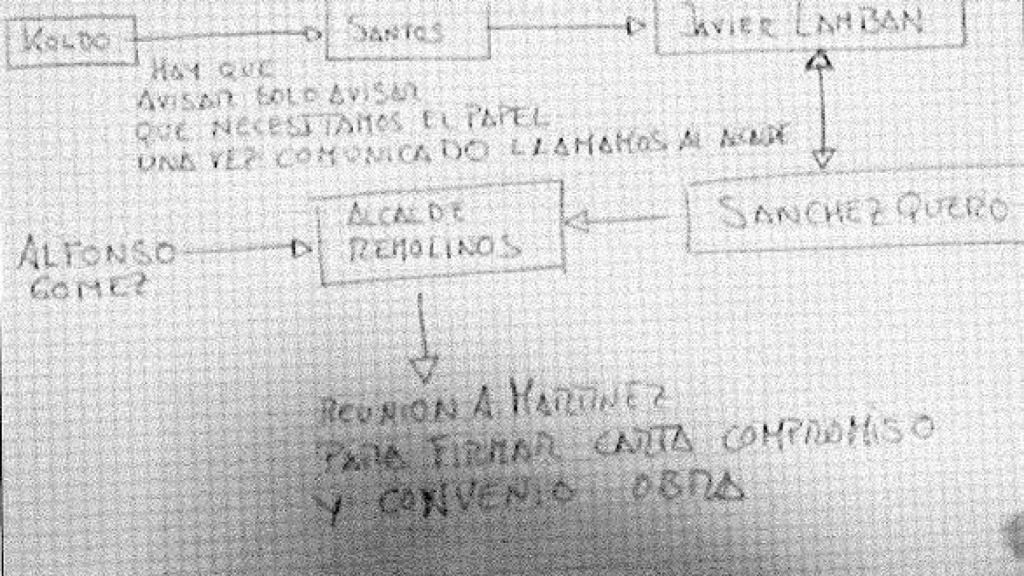 KOLDO
SANTOS
JAVIER LAMBAN
HAY QUE
AVISAR SOLO AVISAR
QUE NECESITAMOS EL PAPEL
UNA VEZ COMUNICADO LLAMAMOS AL ALCADE
SANCHEZ QUERO
ALCALDE
REMOLINOS
ALFONSO
GOMEZ
REUNION A. MARTINEZ
PARA FIRMAR CARTA COMPROMISO
Y CONVENIO OBRA